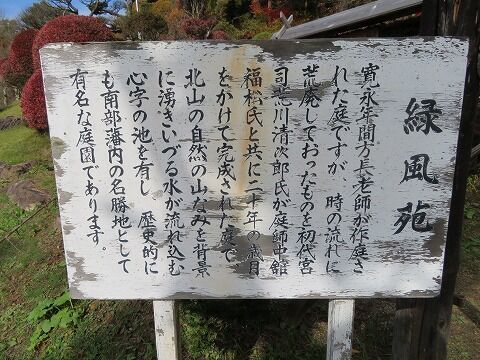 緑風苑
寛永年間方長老師が作庭さ
れた庭ですが 時の流れに
荒廃しておったものを初代宮
司荒川清次郎氏が庭師中舘
福松氏と共に二十年の歳月
をかけて完成された庭で
北山の自然の山なみを背景
に湧きいづる水が流れ込む
心字の池を有し 歴史的に
も南部藩内の名勝地として
有名な庭園であります